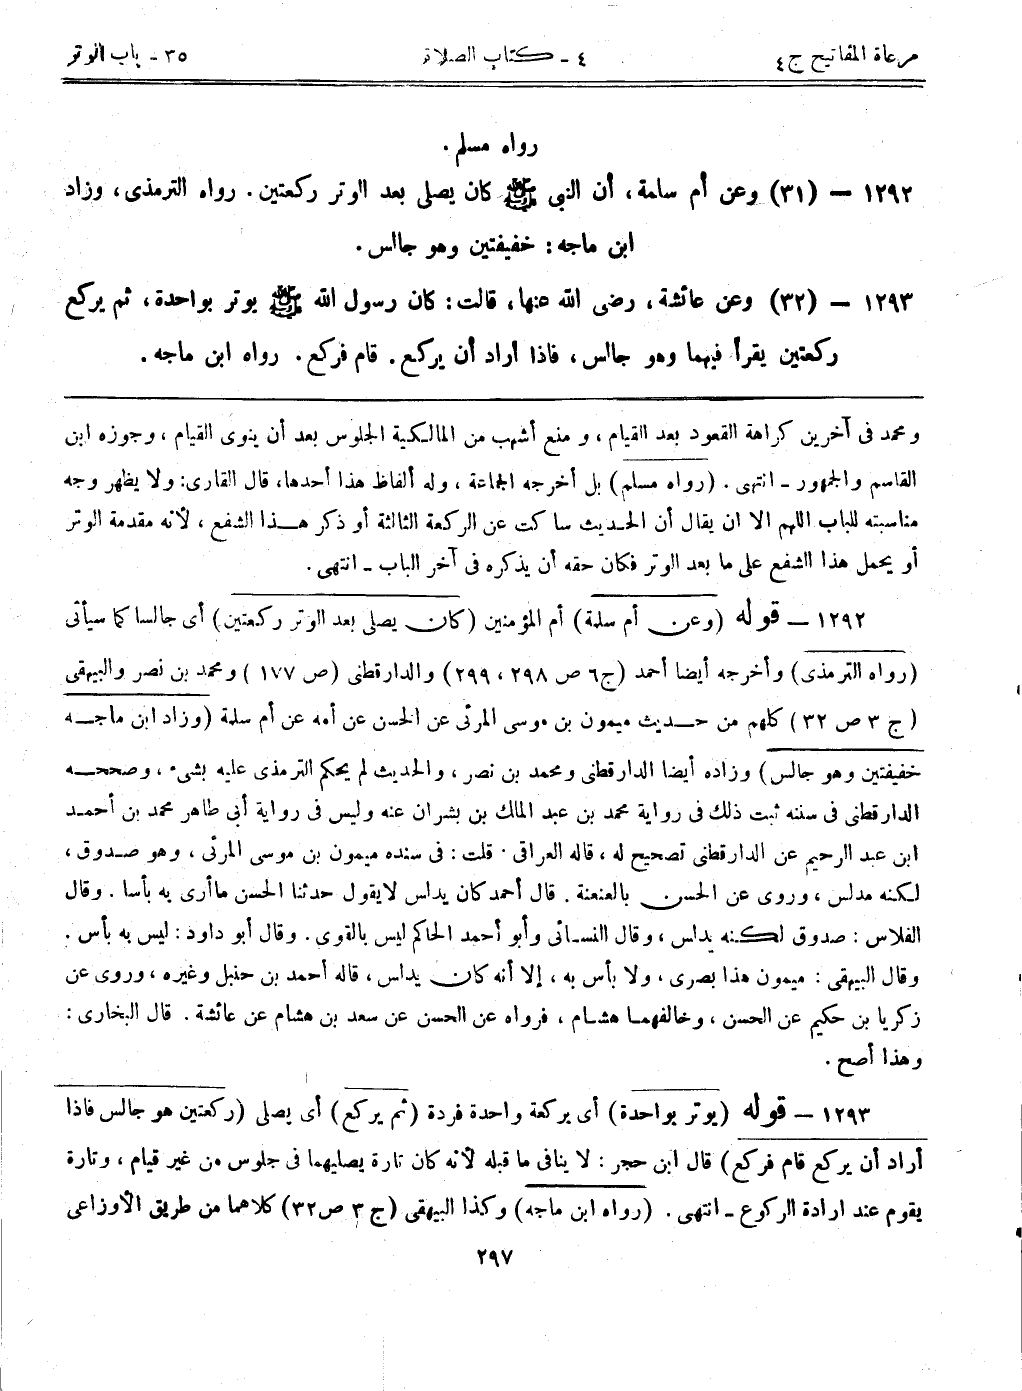 مرعاة المفاتيح ج٤
٤ ـ كتاب الصلاة
٣٥ ـ باب الوتر
رواه مسلم .
١٢٩٢ – (٣١) وعن أم سلمة، أن النبى ﷺ كان يصلى بعد الوتر ركعتين. رواه الترمذى، وزاد
ابن ماجه: خفيفتين وهو جالس.
١٢٩٣ – (٣٢) وعن عائشة، رضى الله عنها، قالت: كان رسول الله ﷺ يوتر بواحدة، ثم يركع
ركعتين يقرأ فيهما وهو جالس، فاذا أراد أن يركع. قام فركع. رواه ابن ماجه.
ومحمد فى آخرين كراهة القعود بعد القيام، و منع أشهب من المالكية الجلوس بعد أن ينوى القيام، وجوزه ابن
القاسم والجمهور ـ انتهى. (رواه مسلم) بل أخرجه الجماعة، وله ألفاظ هذا أحدها، قال القارى: ولا يظهر وجه
مناسبته للباب اللهم الا ان يقال أن الحديث ساكت عن الركعة الثالثة أو ذكر هذا الشفع، لأنه مقدمة الوتر
أو يحمل هذا الشفع على ما بعد الوتر فكان حقه أن يذكره فى آخر الباب ـ انتهى.
١٢٩٢ – قوله (وعن أم سلمة) أم المؤمنين (كان يصلى بعد الوتر ركعتين) أى جالسا كما سيأتى
(رواه الترمذى) وأخرجه أيضا أحمد (ج٦ ص ٢٩٨، ٢٩٩) والدارقطنى (ص ١٧٧) ومحمد بن نصر والبيهقى
(ج ٣ ص ٣٢) كلهم من حديث ميمون بن موسى المرئى عن الحسن عن أمه عن أم سلمة (وزاد ابن ماجه
خفيفتين وهو جالس) وزاده أيضا الدارقطنى ومحمد بن نصر، والحديث لم يحكم الترمذى عليه بشىء، وصححه
الدارقطنى فى سننه ثبت ذلك فى رواية محمد بن عبد الملك بن بشران عنه وليس فى رواية أبى طاهر محمد بن أحمد
ابن عبد الرحيم عن الدارقطنى تصحيح له، قاله العراقى. قلت: فى سنده ميمون بن موسى المرئى، وهو صدوق،
لكنه مدلس، وروى عن الحسن بالعنعنة. قال أحمد كان يدلس لايقول حدثنا الحسن ماأرى به بأسا. وقال
الفلاس: صدوق لكنه يدلس، وقال النسائى وأبو أحمد الحاكم ليس بالقوى. وقال أبو داود: ليس به بأس.
وقال البيهقى: ميمون هذا بصرى، ولا بأس به، إلا أنه كان يدلس، قاله أحمد بن حنبل وغيره، وروى عن
زكريا بن حكيم عن الحسن، وخالفهما هشام، فرواه عن الحسن عن سعد بن هشام عن عائشة. قال البخارى:
وهذا أصح.
١٢٩٣ – قوله (يوتر بواحدة) أى بركعة واحدة فردة (ثم يركع) أى يصلى (ركعتين هو جالس فاذا
أراد أن يركع قام فركع) قال ابن حجر: لا ينافى ما قبله لأنه كان تارة يصليهما فى جلوس من غير قيام، وتارة
يقوم عند ارادة الركوع ـ انتهى. (رواه ابن ماجه) وكذا البيهقى (ج ٣ ص٣٢) كلاهما من طريق الأوزاعى
٢٩٧